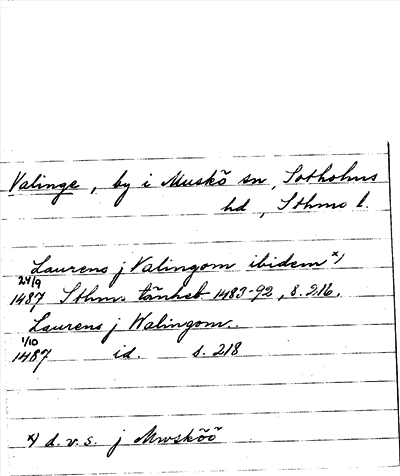 Valinge, by i Muskö sn, Sotholms
hd, Sthms l.
Laurens j Valingom ibidem x)
24/9
1487 Sthms tänkeb 1483-92, s. 216.
Laurens j Walingom.
1/10
1487 id. s. 218
x) d.v.s. j Mwsköö